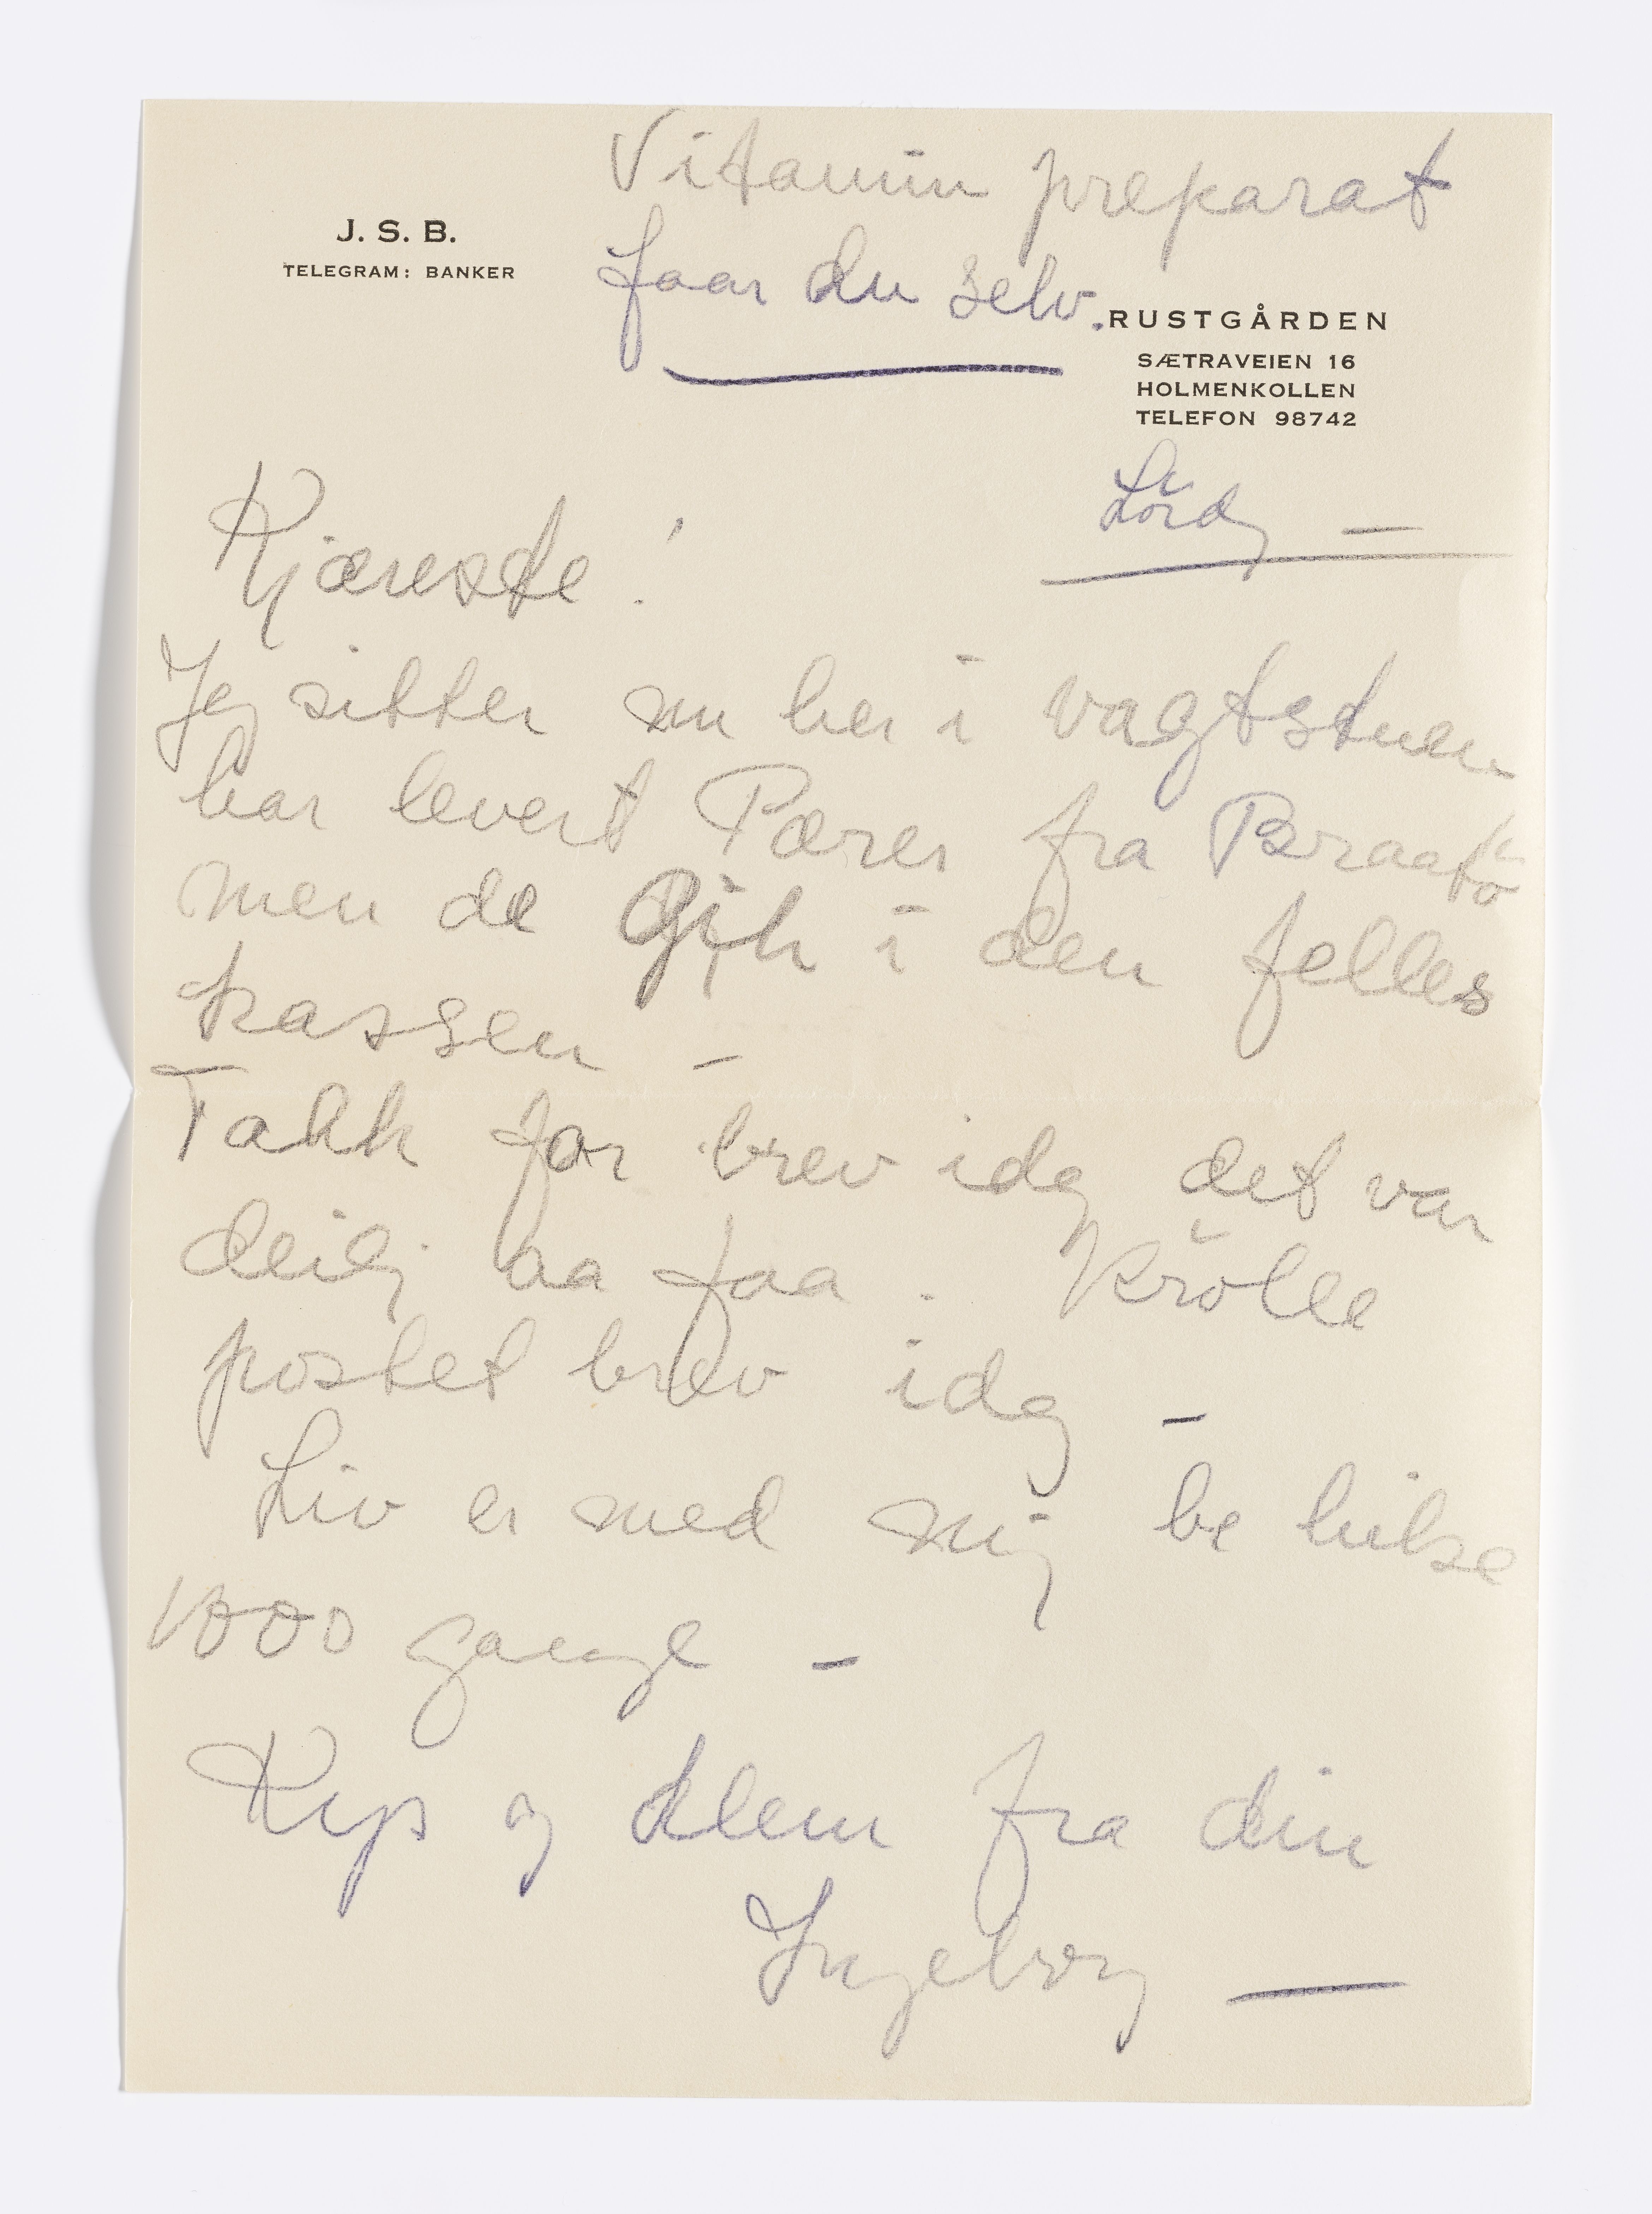 Vitamin preparat
faar du selv.
J. S. B.
TELEGRAM: BANKER
RUSTGÅRDEN
SÆTRAVEIEN 16
HOLMENKOLLEN
TELEFON 98742
Lördg —
Kjæreste!
Jeg sitter nu her i vagtstuen
har levert Pærer fra Braatö
men de gik i den felles
kassen –
Takk for brev idag det var
deilig aa faa. Krölle
postet brev idag –
Liv er med mig be hilse
1000 gange –
Kys og klem fra din
Ingeborg —